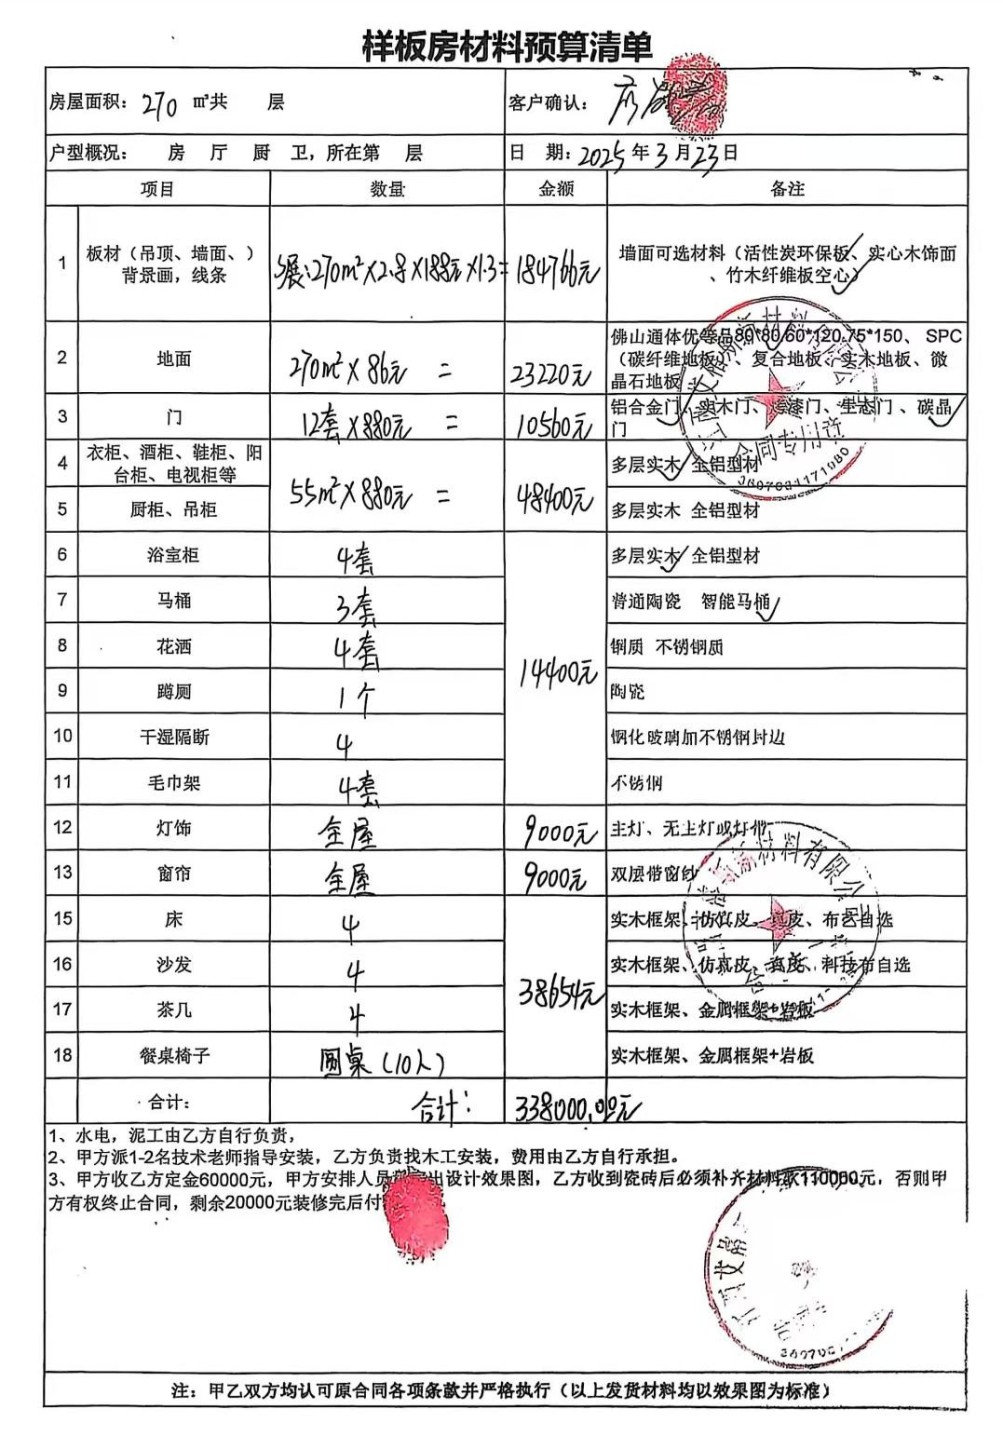 样板房材料预算清单
房屋面积: 270 ㎡共 层
客户确认:
户型概况: 房 厅 厨 卫，所在第 层
日 期: 2025年3月23日
项目 数量 金额 备注
1 板材（吊顶、墙面、）背景画，线条 展:270m²×2.8×188元×1.3= 184766元 墙面可选材料（活性炭环保板、实心木饰面、竹木纤维板空心）
2 地面 270m²×86元 = 23220元 佛山通体优等品80*80/60*120.75*150、 SPC（碳纤维地板）、复合地板、实木地板、微晶石地板
3 门 12套×880元 = 10560元 铝合金门、实木门、烤漆门、生态门、碳晶门
4 衣柜、酒柜、鞋柜、阳台柜、电视柜等 55m²×880元 = 48400元 多层实木 全铝型材
5 厨柜、吊柜 多层实木 全铝型材
6 浴室柜 4套 14400元 多层实木 全铝型材
7 马桶 3套 普通陶瓷 智能马桶
8 花洒 4套 铜质 不锈钢质
9 蹲厕 1个 陶瓷
10 干湿隔断 4 钢化玻璃加不锈钢封边
11 毛巾架 4套 不锈钢
12 灯饰 全屋 9000元 主灯、无主灯或灯带
13 窗帘 全屋 9000元 双层带窗纱
15 床 4 38654元 实木框架、仿真皮、真皮、布艺自选
16 沙发 4 实木框架、仿真皮、真皮、科技布自选
17 茶几 4 实木框架、金属框架+岩板
18 餐桌椅子 圆桌(10人) 实木框架、金属框架+岩板
合计: 合计: 338000.00元
1、水电，泥工由乙方自行负责，
2、甲方派1-2名技术老师指导安装，乙方负责找木工安装，费用由乙方自行承担。
3、甲方收乙方定金60000元，甲方安排人员出设计效果图，乙方收到瓷砖后必须补齐材料款110000元，否则甲
方有权终止合同，剩余20000元装修完后付
合同专用章
3607031171980
材料有限公司
注: 甲乙双方均认可原合同各项条款并严格执行（以上发货材料均以效果图为标准）